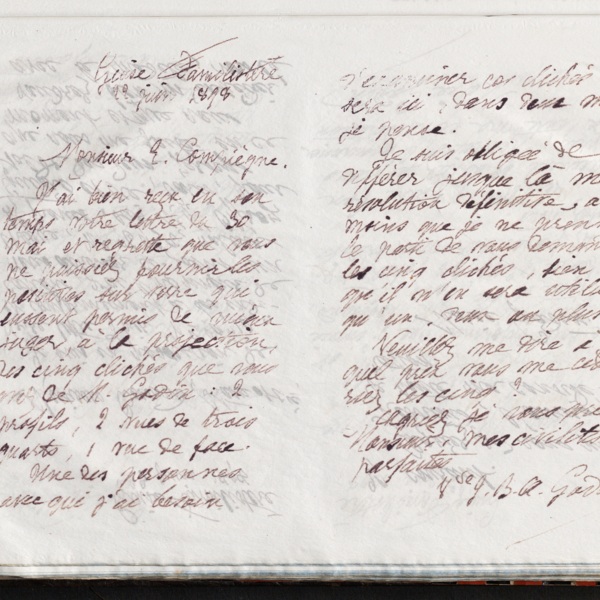 Guise Familistère
2 juin 1898
Monsieur E. Compiègne.
J'ai bien reçu en son
temps votre lettre du 30
mai et regrette que vous
ne puissiez fournir les
positifs sur verre qui
eussent permis de mieux
juger, à la projection,
des cinq clichés que vous
de M. Godin : 2
profils, 2 vues de trois
quarts, 1 vue de face.
Une des personnes
avec qui j'ai besoin
d'examiner ces clichés
sera ici dans deux m
je pense.
Je suis obligée de
différer jusque là m
résolution définitive, à
moins que je ne prenn
le parti de vous deman
les cinq clichés, bien
qu'il n'en sera utili
qu'un, deux au plus
Veuillez me dire à
quel prix vous me céd
riez les cinq ?
Agréez je vous prie
Monsieur, mes civilités
parfaites
Vve J. B. A. God